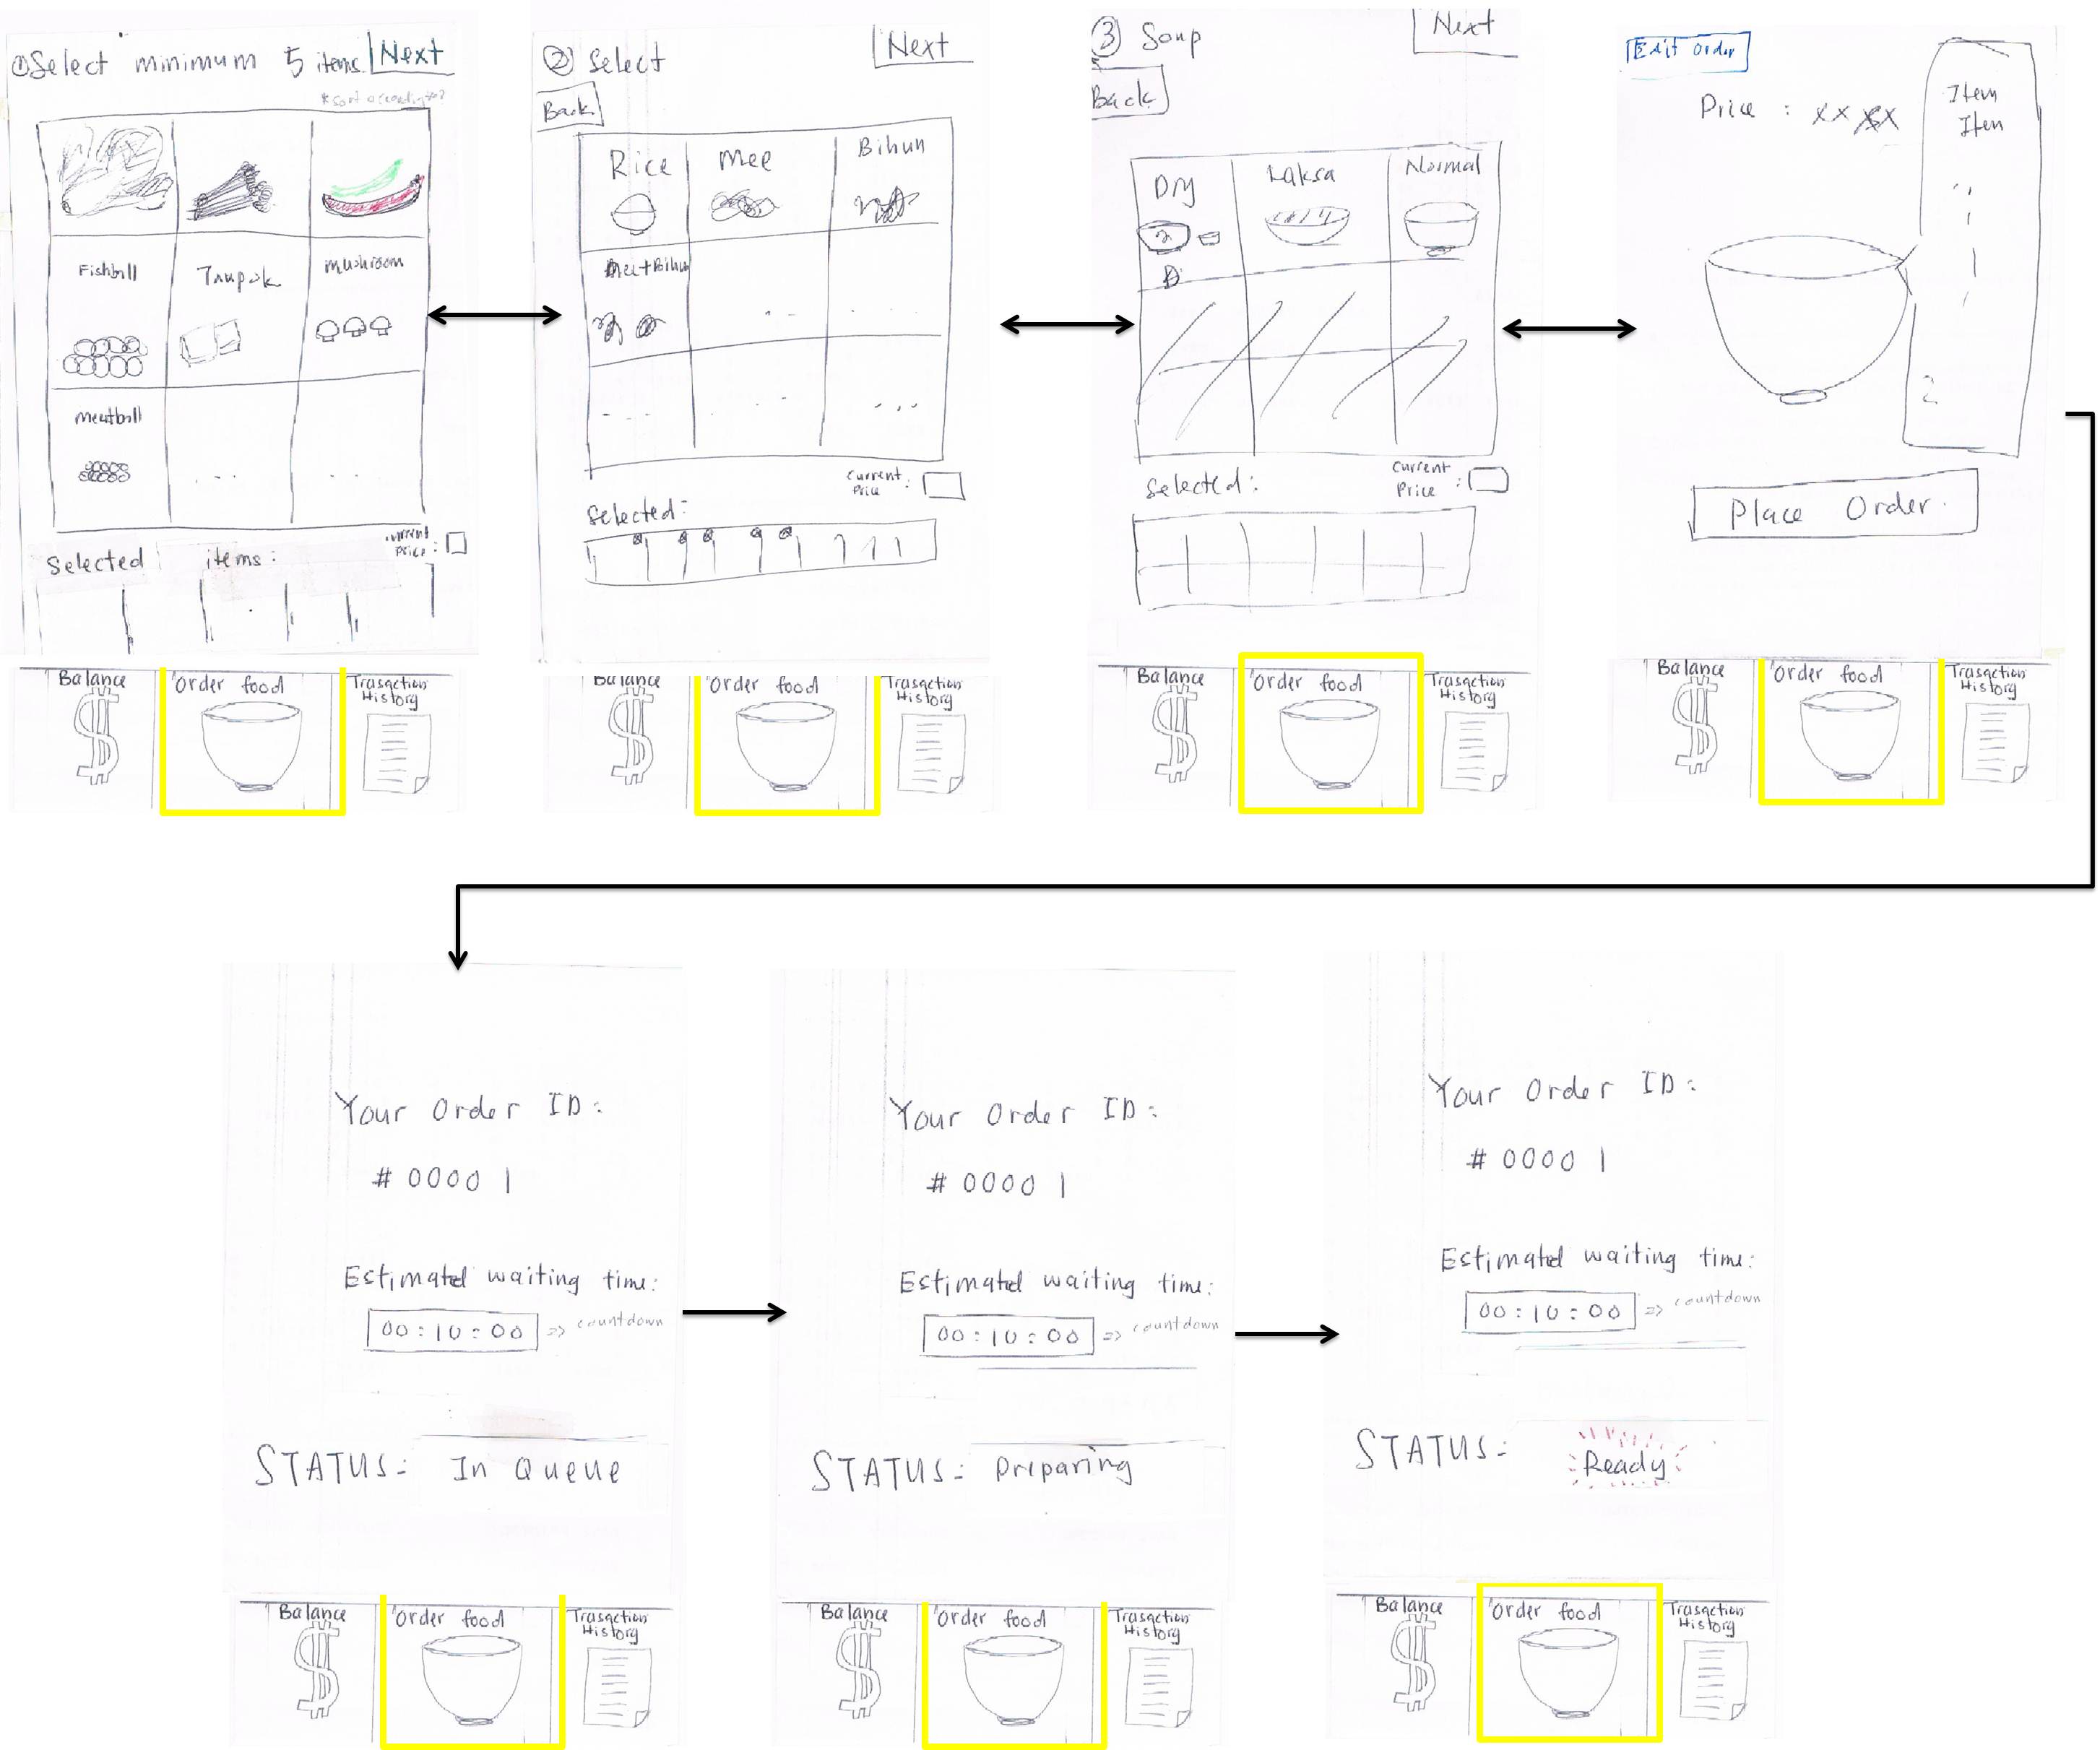 ① Select minimum 5 items
Next
Fishball
Taupok
mushroom
meatball
Selected items:
current price :
Balance
Order food
Trasaction History
② Select
Next
Back
Rice
Mee
Bihun
Mee+Bihun
current Price :
Selected:
Balance
Order food
Trasaction History
③ Soup
Next
Back
Dry
Laksa
Normal
Selected:
current Price :
Balance
Order food
Trasaction History
Edit order
Price : xx xx
Item
Item
Place Order
Balance
Order food
Trasaction History
Your Order ID:
# 0000 1
Estimated waiting time:
00:10:00 => countdown
STATUS: In Queue
Balance
Order food
Trasaction History
Your Order ID:
# 0000 1
Estimated waiting time:
00:10:00 => countdown
STATUS: Preparing
Balance
Order food
Trasaction History
Your Order ID:
# 0000 1
Estimated waiting time:
00:10:00 => countdown
STATUS: Ready
Balance
Order food
Trasaction History